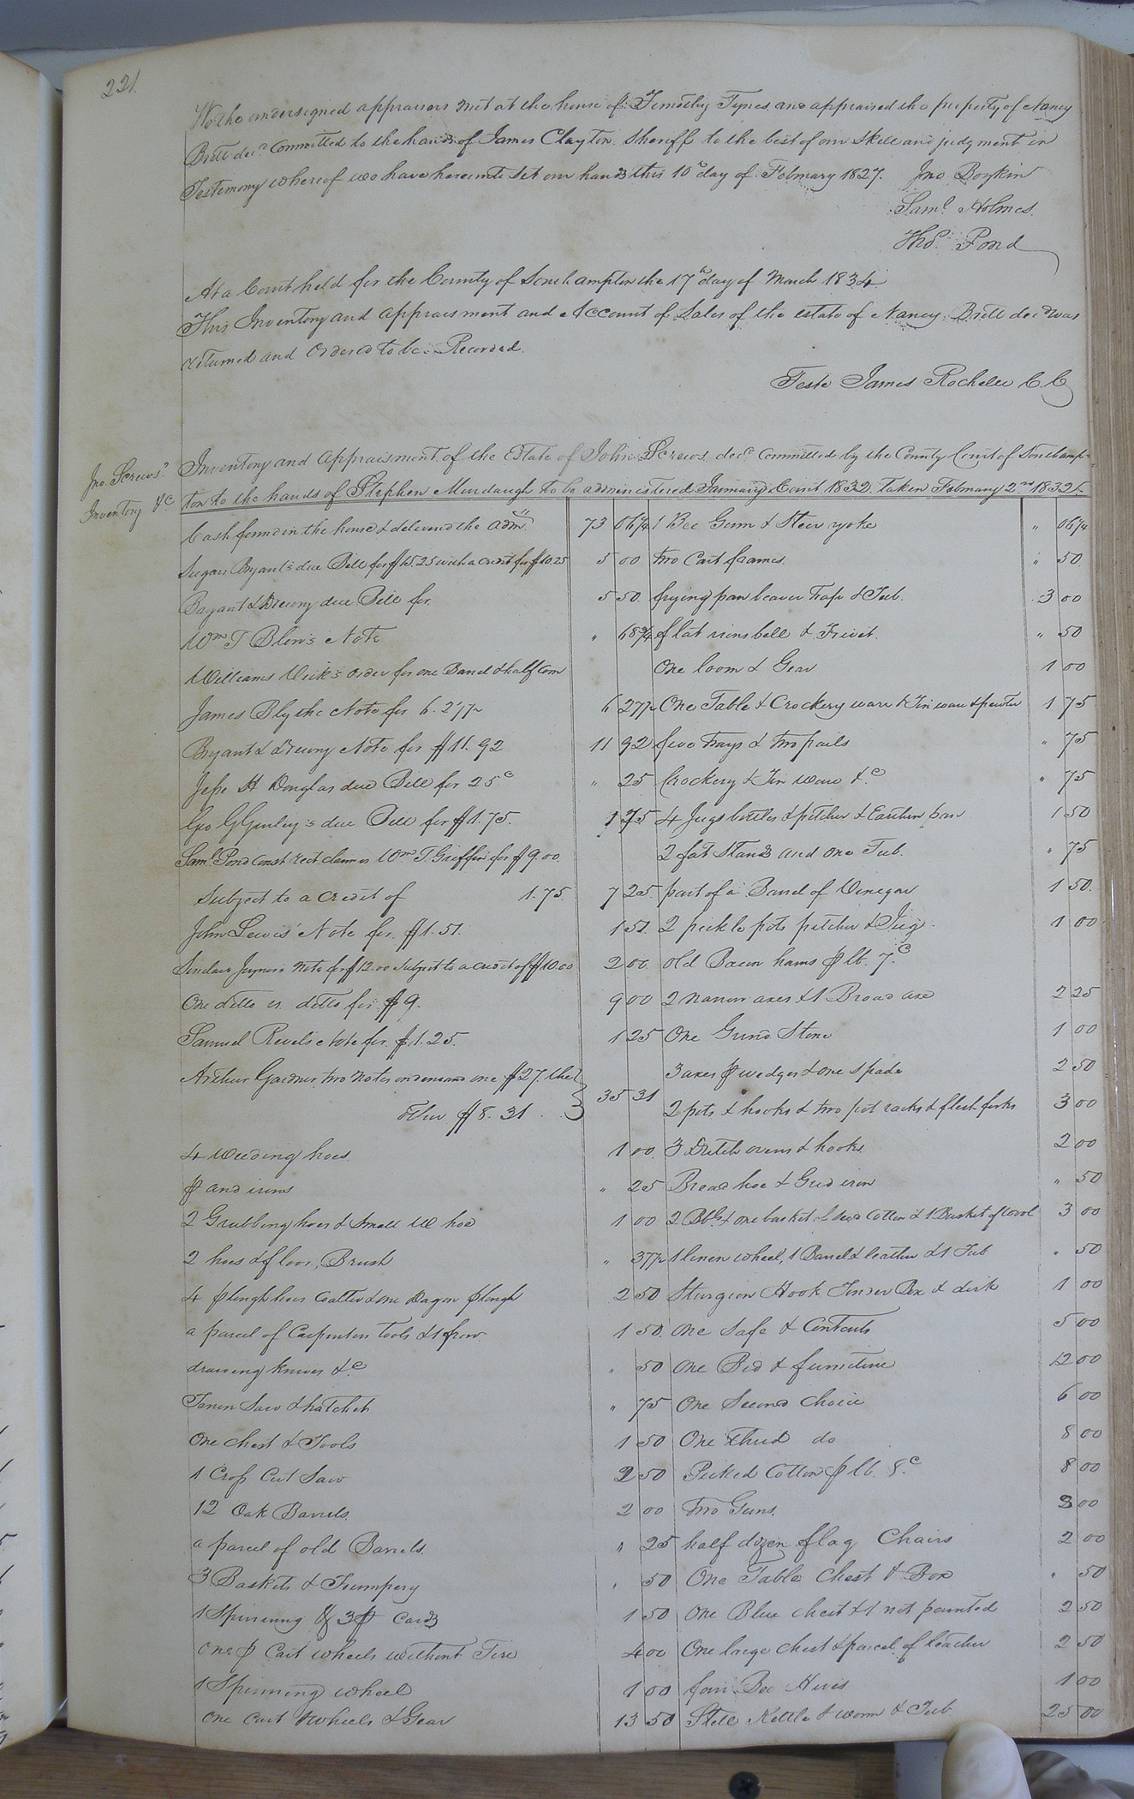 221.
We the undersigned appraisers met at the house of Timothy Tynes and appraised the property of Nancy
Britt decd. Committed to the hands of James Clayton Sheriff to the best of our Skill and judgment in
Testimony whereof we have hereunto Set our hands this 10th day of February 1827. Jno Boykin
Saml. Holmes.
Thos. Pond
At a Court held for the County of Southampton the 17th day of March 1834
This Inventory and appraisment and Account of Sales of the estate of Nancy Britt decd was
returned and Ordered to be Recorded.
Teste James Rochelle CC
Jno. Screws'
Inventory &c
Inventory and Appraisment of the Estate of John Screws decd. Committed by the County Court of Southamp-
ton to the hands of Stephen Murdaugh to be administered January Court 1832. taken February 2nd 1832
Cash found in the house & delivered the admr. 73 06¼
due Bill for $15.25 with a credit for $10.25 5 00
Bryant & Drewry due Bill for 5 50
Wm T Blow's Note " 68¾
Williams order for one Barrel & half Corn
James Blythe Note for 6.27½ 6 27½
Bryant & Drewry Note for $11.92 11 92
Jesse H Douglas due Bill for 25c " 25
Geo G Gurley's due Bill for $1.75. 1 75
Saml. Pond Const rect claim on Wm T. Griffin for $9.00
Subject to a credit of 1.75 7 25
John Lewis' Note for $1.51. 1 51
Sinclair Note for $12.00 Subject to a credit of $10.00 2 00
One ditto ditto for $9. 9 00
Samuel Revels Note for $1.25. 1 25
Arthur Gardner two notes on demand one $27. the
other $8.31 35 31
4 weeding hoes 1 00
and irons " 25
2 Grubbing hoes & Small W hoe 1 00
2 hoes & floor Brush " 37½
4 plough hoes Coulter & one Dagon plough 2 50
a parcel of Carpenters Tools & 1 frow 1 50
drawing knives &c " 50
Tenon Saw & hatchet " 75
One chest & Tools 1 50
1 Cross Cut Saw 2 50
12 Oak Barrels. 2 00
a parcel of old Barrels. " 25
3 Baskets & Trumpery " 50
1 Spinning & 3 p Cards 1 50
one p Cart wheels without Tire 4 00
1 Spinning wheel 1 00
One Cart & wheels & Gear 13 50
1 Bee Gum & Steer yoke " 06¼
two Cart frames. " 50
frying pan beaver trap & Tub. 3 00
flat irons bell & Trivit. " 50
One loom & Gear 1 00
One Table & Crockery ware & Tin ware & pewter 1 75
two trays & two pails " 75
Crockery & Tin ware &c " 75
4 Jugs bottles & pitcher & Earthen pan 1 50
2 fat Stands and one Tub. " 75
part of a Barrel of Vinegar 1 50
2 pickle pots pitcher & Jug. 1 00
old Bacon hams p lb. 7c
2 narrow axes & 1 Broad axe 2 25
One Grind Stone 1 00
3 axes p wedges & one Spade 2 50
2 pots & hooks & two pot racks & flesh forks 3 00
3 Dutch ovens & hooks 2 00
Broad hoe & Grid iron " 50
2 Bbls & one basket of Seed Cotton & 1 Basket of wool 3 00
1 linen wheel, 1 Barrel & leather & 1 Tub " 50
Sturgeon Hook Tinder Box & dirk 1 00
One Safe & Contents 5 00
One Bed & furniture 12 00
One Second Choice 6 00
One third do 8 00
Picked Cotton p lb. 8c 8 00
two Guns. 3 00
half dozen flag Chairs 2 00
One Table Chest & Box " 50
One Blue chest & 1 not painted 2 50
One large chest & parcel of leather 2 50
four Bee Hives 1 00
Still Kettle & worm & Tub 25 00